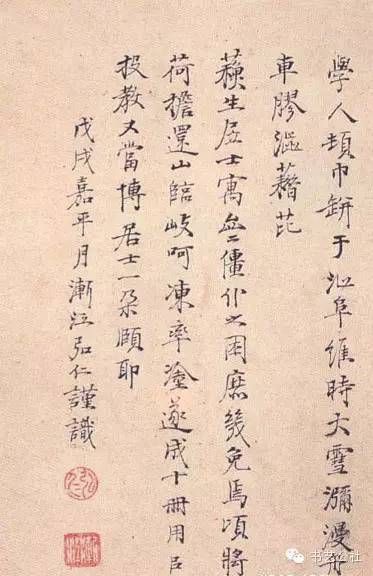 學人頓巾缾于沁阜維時大雪瀰漫舟
車膠澀藉芘
蘋生居士寓僮仆之困庶幾免焉頃將
荷擔還山臨歧呵凍率塗遂成十冊用以
投教又當博居士一朵頤耶
戊戌嘉平月漸江弘仁謹識
书艺公社